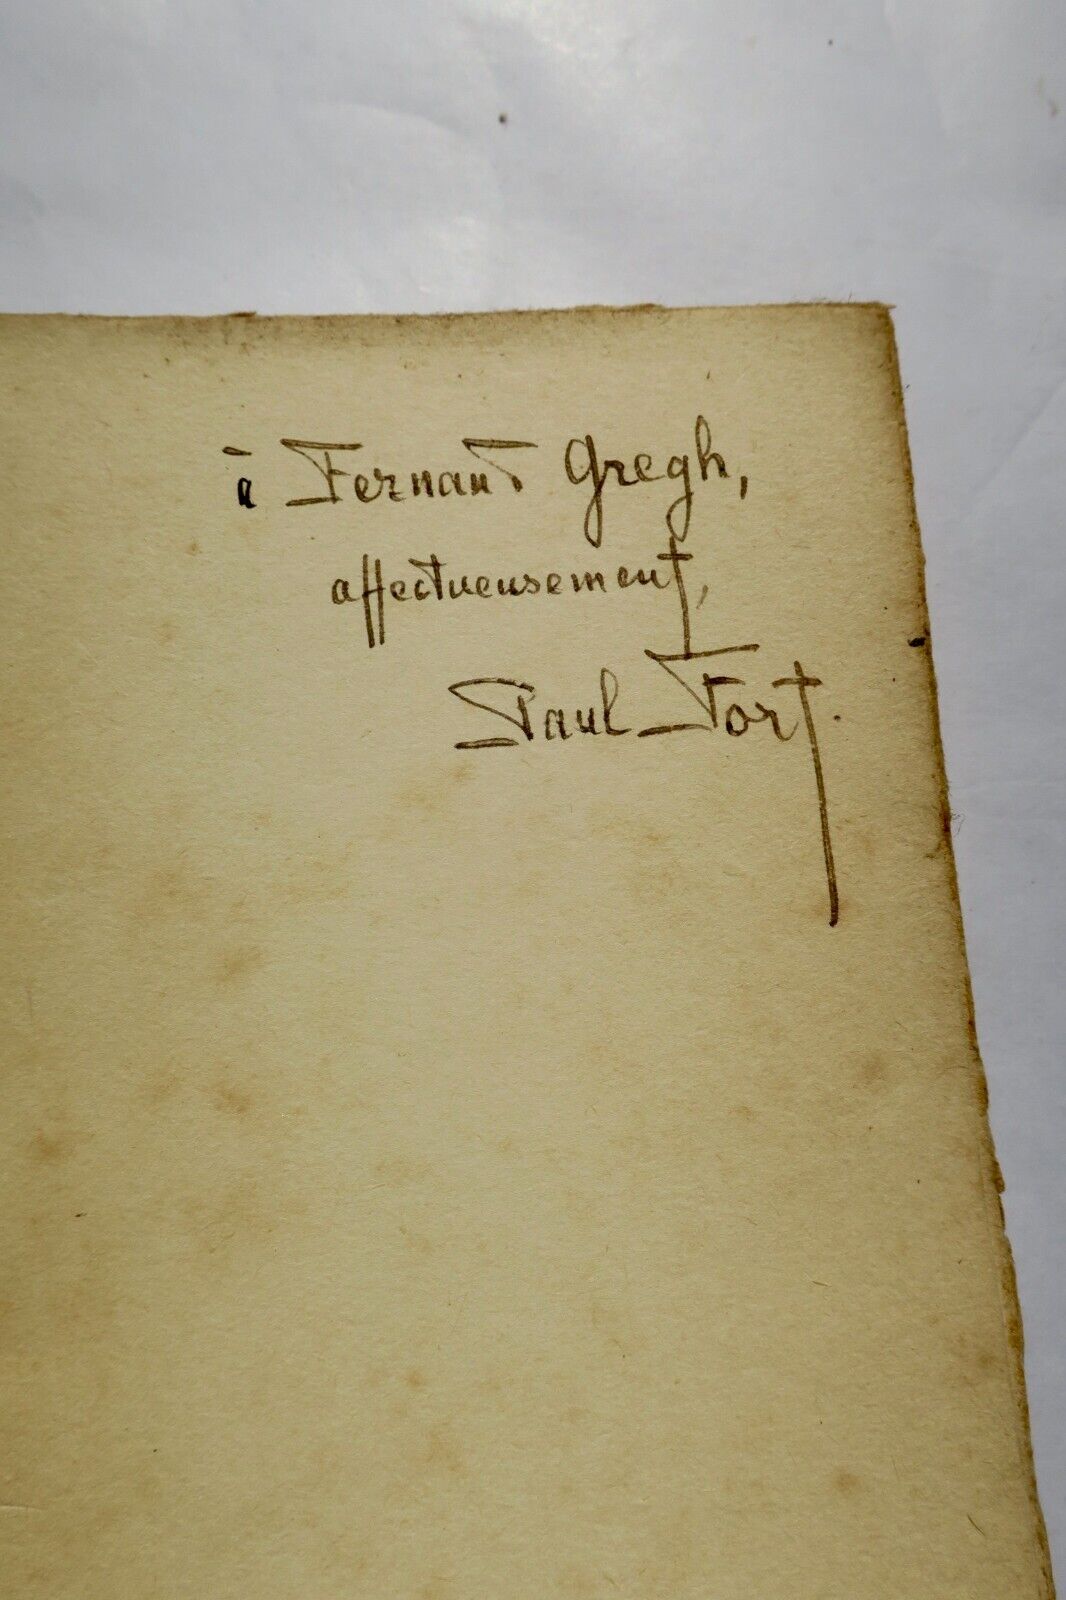 à Fernand Gregh,
affectueusement,
Paul Fort.